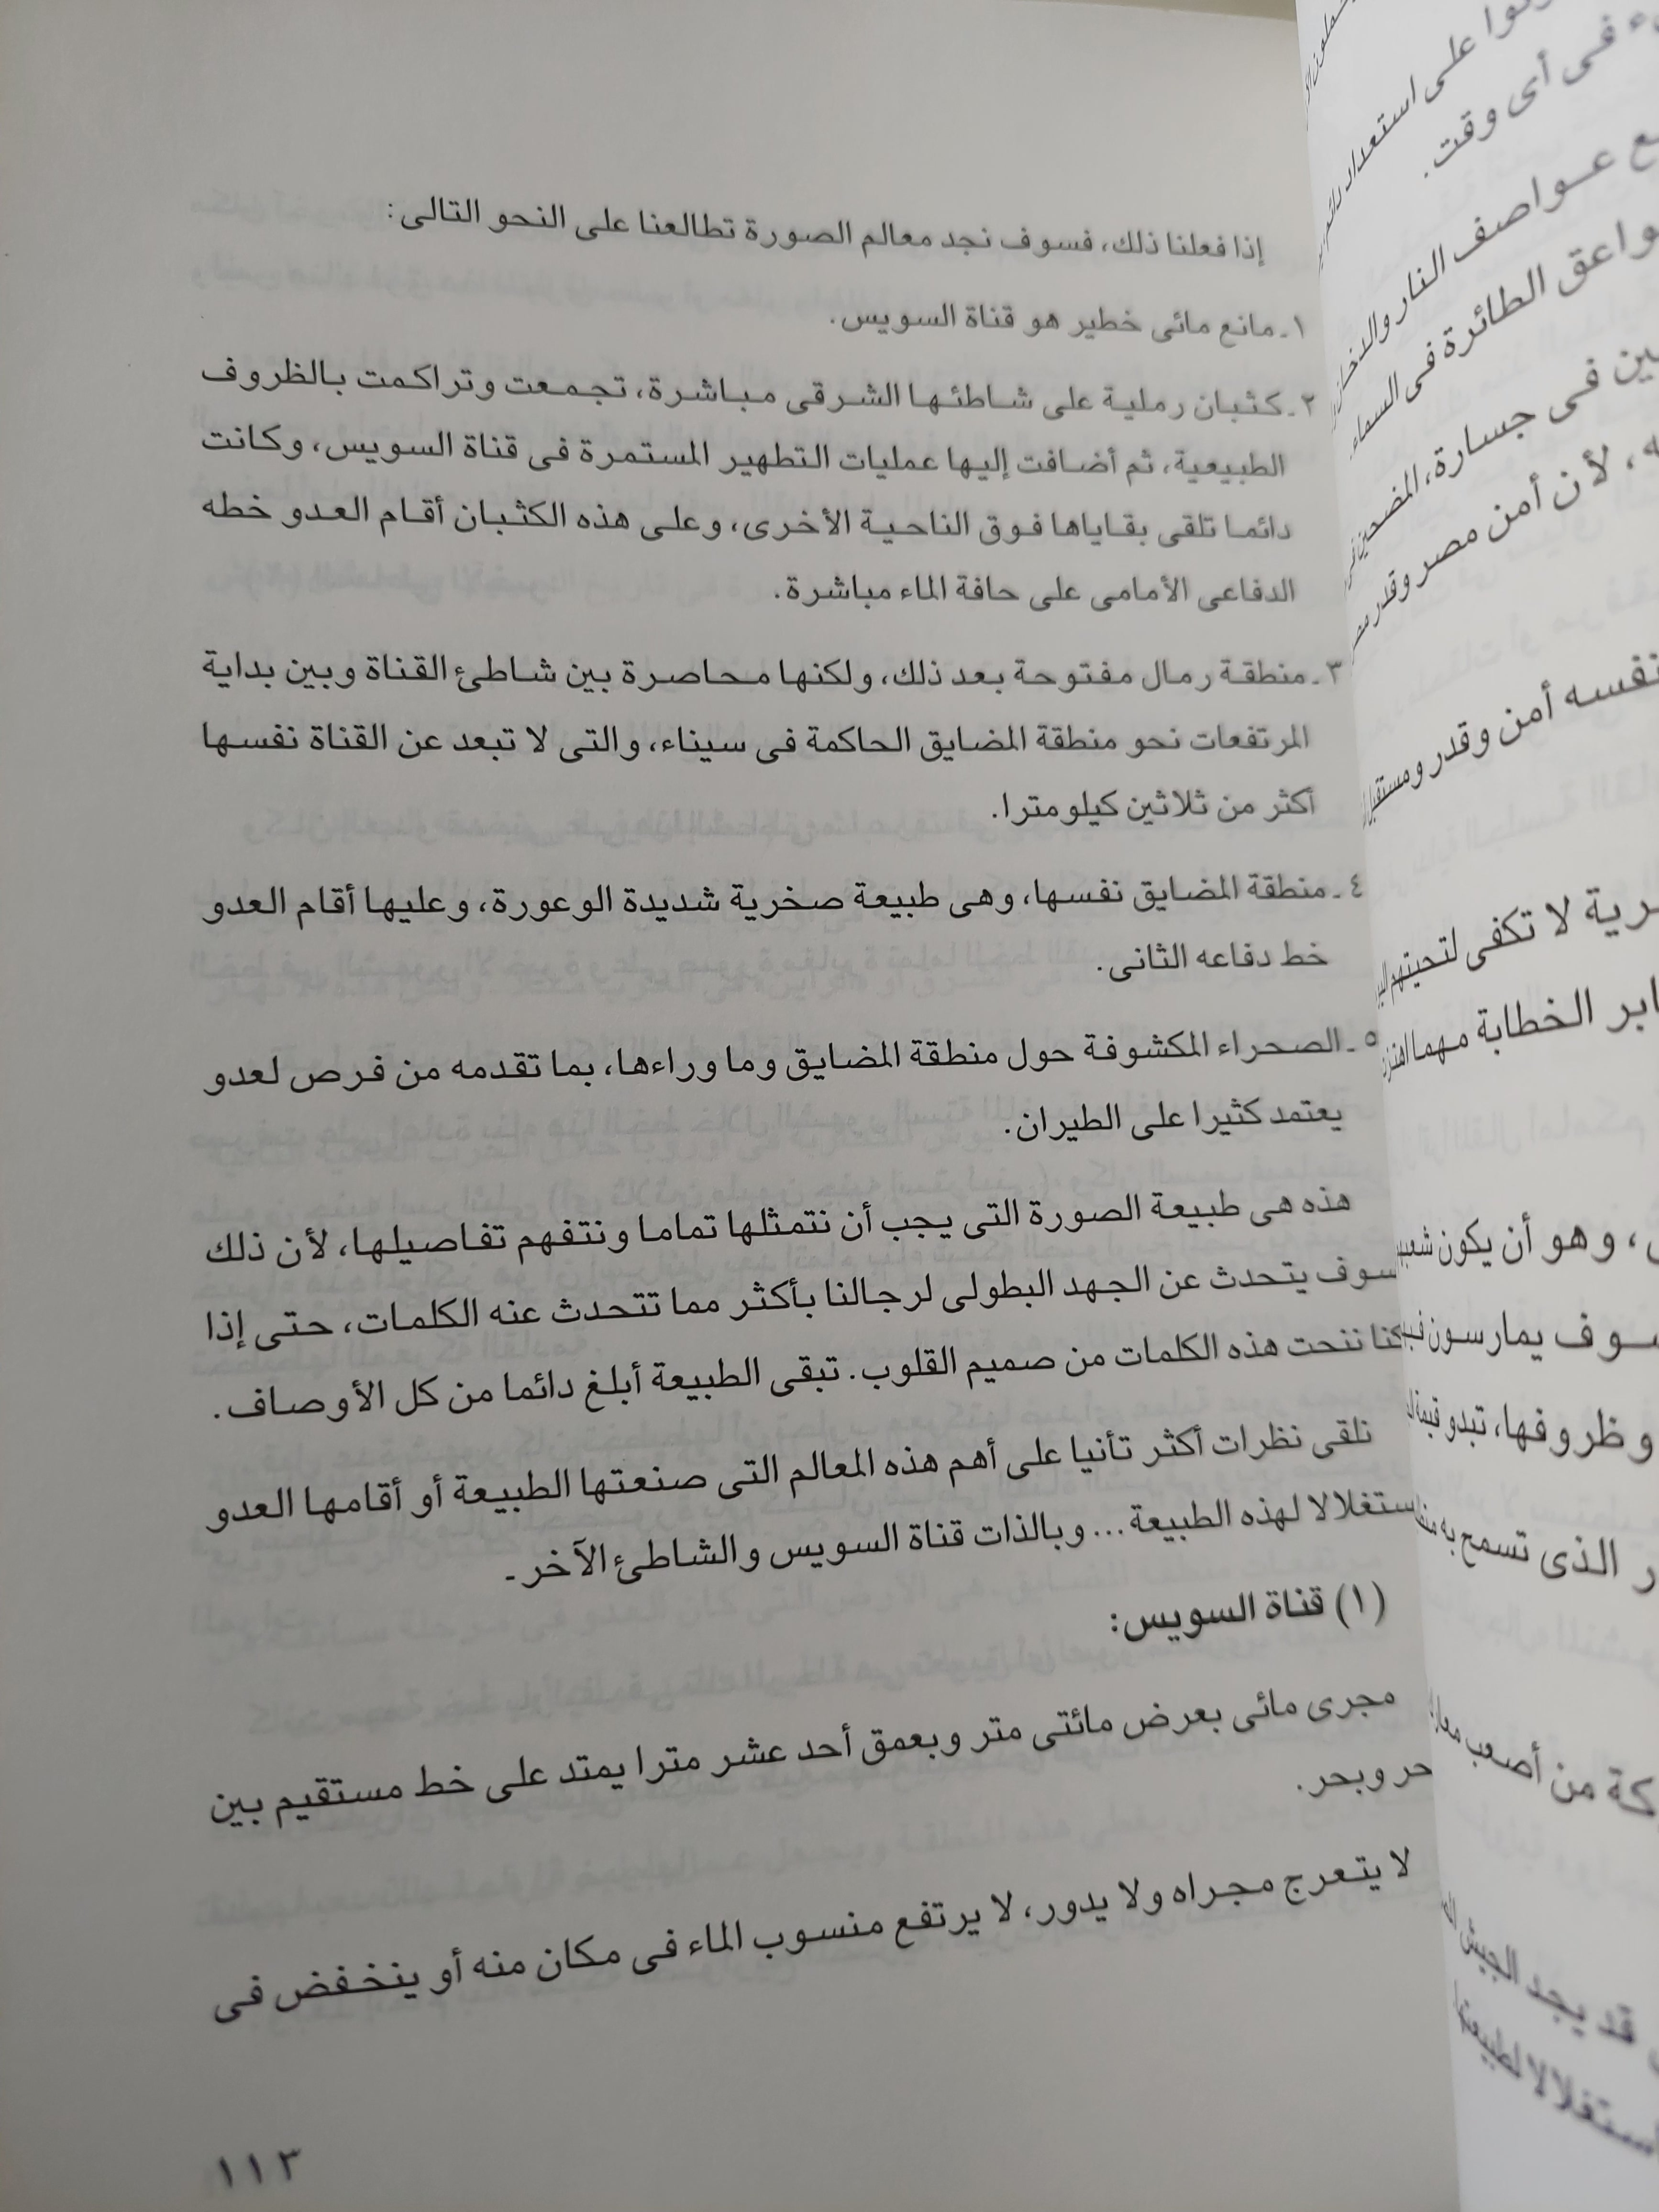 إذا فعلنا ذلك، فسوف نجد معالم الصورة تطالعنا على النحو التالى:
١ـ مانع مائى خطير هو قناة السويس.
٢ـ كثبان رملية على شاطئها الشرقى مباشرة، تجمعت وتراكمت بالظروف
الطبيعية، ثم أضافت إليها عمليات التطهير المستمرة فى قناة السويس، وكانت
دائما تلقى بقاياها فوق الناحية الأخرى، وعلى هذه الكثبان أقام العدو خطه
الدفاعى الأمامى على حافة الماء مباشرة.
٣ـ منطقة رمال مفتوحة بعد ذلك، ولكنها محاصرة بين شاطئ القناة وبين بداية
المرتفعات نحو منطقة المضايق الحاكمة فى سيناء، والتى لا تبعد عن القناة نفسها
أكثر من ثلاثين كيلو مترا.
٤ـ منطقة المضايق نفسها، وهى طبيعة صخرية شديدة الوعورة، وعليها أقام العدو
خط دفاعه الثانى.
٥ـ الصحراء المكشوفة حول منطقة المضايق وما وراءها، بما تقدمه من فرص لعدو
يعتمد كثيرا على الطيران.
هذه هى طبيعة الصورة التى يجب أن نتمثلها تماما ونتفهم تفاصيلها، لأن ذلك
سوف يتحدث عن الجهد البطولى لرجالنا بأكثر مما تتحدث عنه الكلمات، حتى إذا
كنا ننحت هذه الكلمات من صميم القلوب. تبقى الطبيعة أبلغ دائما من كل الأوصاف.
نلقى نظرات أكثر تأنيا على أهم هذه المعالم التى صنعتها الطبيعة أو أقامها العدو
ستغلالا لهذه الطبيعة... وبالذات قناة السويس والشاطئ الآخر ـ
(١) قناة السويس:
مجرى مائى بعرض مائتى متر وبعمق أحد عشر مترا يمتد على خط مستقيم بين
حر وبحر.
لا يتعرج مجراه ولا يدور، لا يرتفع منسوب الماء فى مكان منه أو ينخفض فى
١١٣
على استعداد
فى أى وقت.
عواصف النار والدخان
الطائرة فى السماء
فى جسارة، المضحين
لأن أمن مصر وقدر
نفسه أمن وقدر ومستقبل
لا تكفى لتحيتهم
الخطابة مهما
، وهو أن يكون
سوف يمارسون
وظروفها، تبدو قيمة
الذى تسمح به
من أصعب
قد يجد الجيش